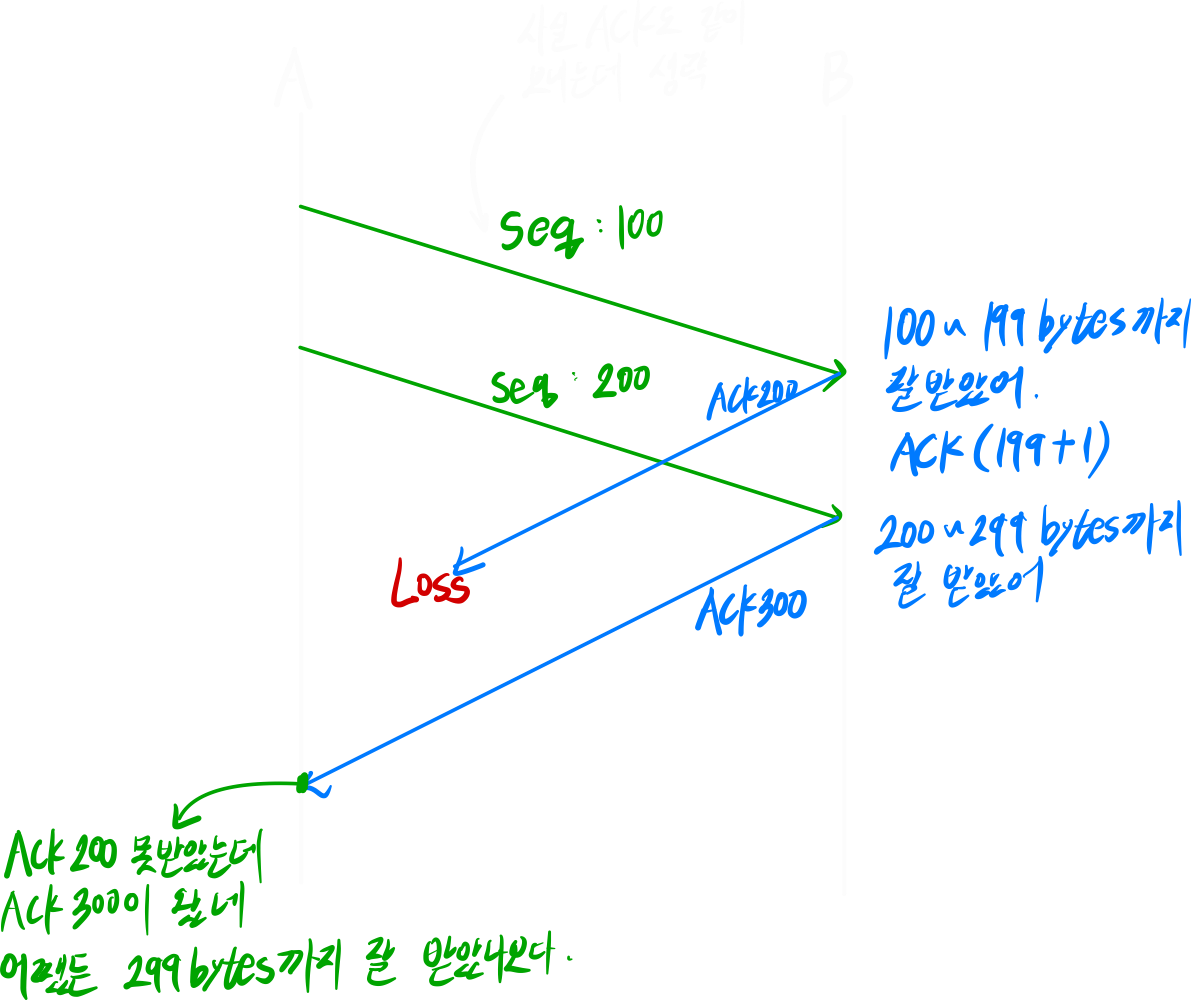 사실 ACK도 같이
보내는데 생략
A
B
Seq : 100
100~199 bytes까지
잘 받았어.
ACK (199+1)
Seq : 200
ACK200
200~299 bytes까지
잘 받았어
Loss
ACK300
ACK 200 못받았는데
ACK 300이 왔네
어쨌든 299 bytes까지 잘 받았나보다.